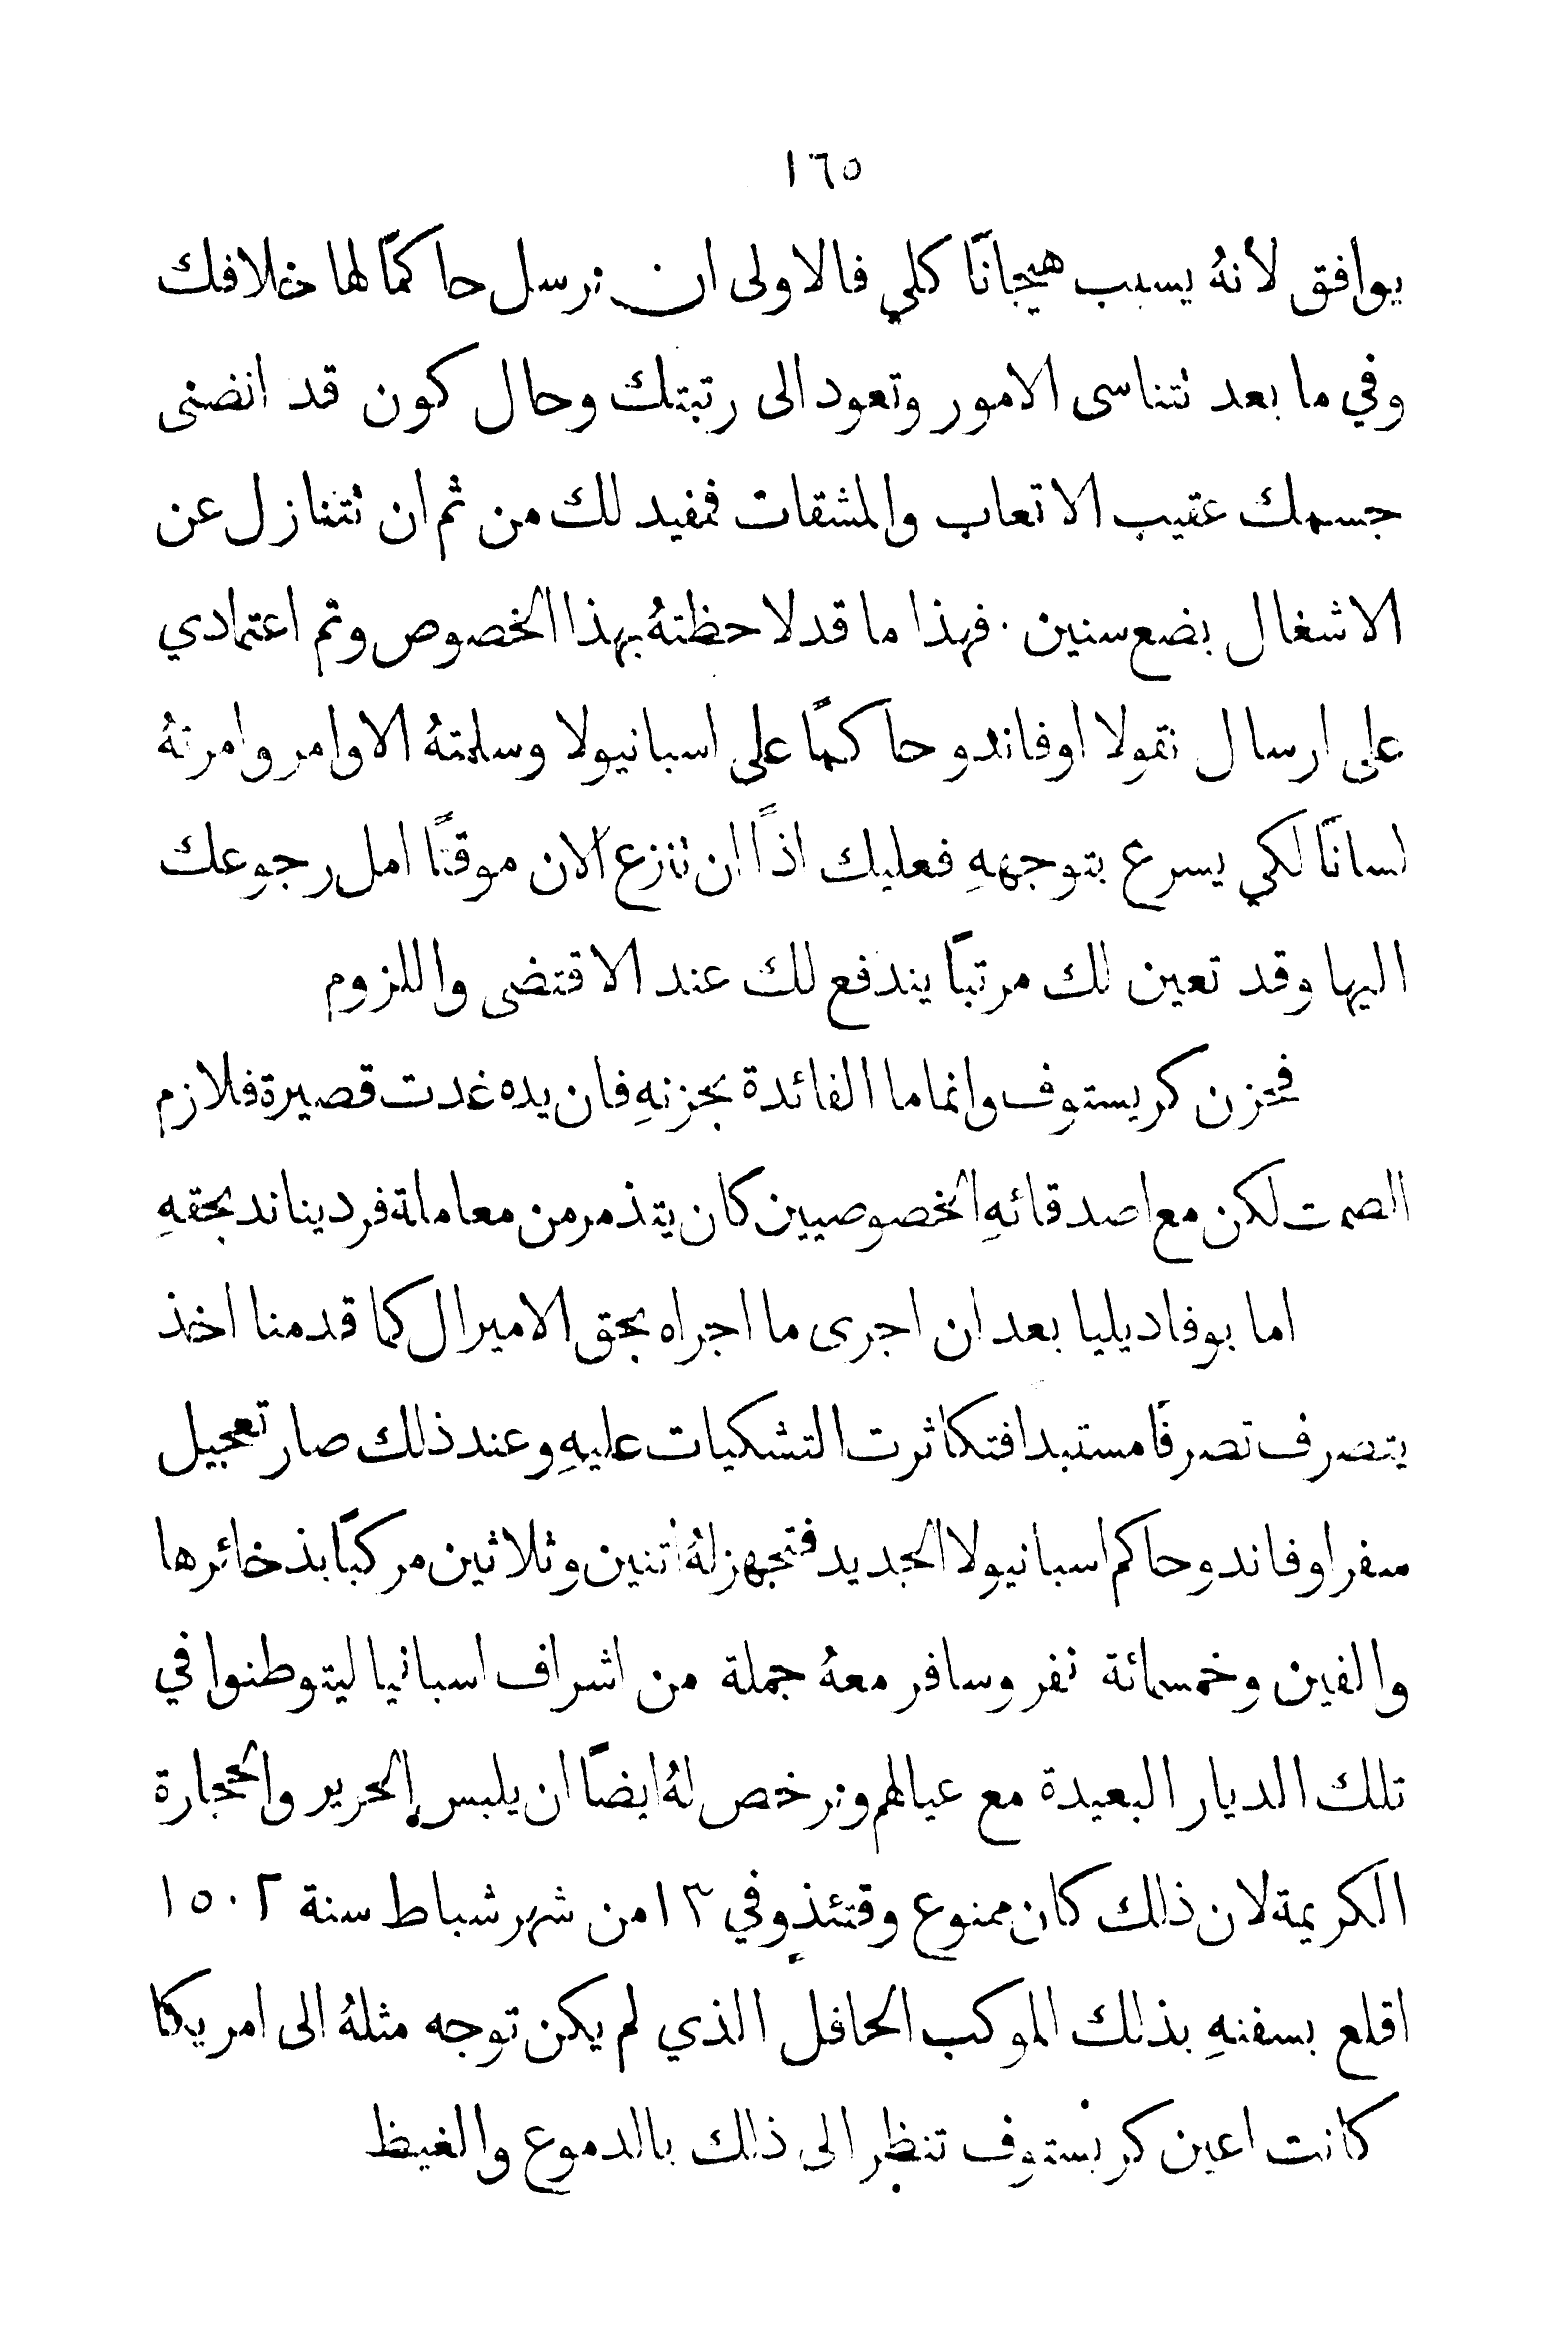 ١٦٥
يوافق لأنهُ يسبب هيجانًا كلي فالاولى ان نرسل حاكمًا لها خلافك
وفي ما بعد نتناسى الامور وتعود الى رتبتك وحال كون قد انضنى
جسمك عقيب الاتعاب والمشقات فمفيد لك من ثم ان نتنازل عن
الاشغال بضع سنين . فهذا ما قد لاحظتهُ بهذا الخصوص وتم اعتمادي
على ارسال نقولا اوفاندو حاكمًا على اسبانيولا وسلمتهُ الاوامر وامرتهُ
لسانًا لكي يسرع بتوجههِ فعليك اذًا ان تنزع الان موقتًا امل رجوعك
اليها وقد تعين لك مرتبًا يندفع لك عند الاقتضى واللزوم
فحزن كريستوف وانما ما الفائدة بحزنهِ فان يده غدت قصيرة فلازم
الصمت لكن مع اصدقائهِ الخصوصيين كان يتذمر من معاملة فرديناند بحقهِ
اما بوفاديليا بعد ان اجرى ما اجراه بحق الاميرال كما قدمنا اخذ
يتصرف تصرفًا مستبدا فتكاثرت التشكيات عليهِ وعند ذلك صار تعجيل
سفر اوفاندو حاكم اسبانيولا الجديد فتجهز لهُ اتنين وثلاثين مركبًا بذخائرها
والفين وخمسمائة نفر وسافر معهُ جملة من اشراف اسبانيا ليتوطنوا في
تلك الديار البعيدة مع عيالهم وترخص لهُ ايضًا ان يلبس الحرير والحجارة
الكريمة لان ذلك كان ممنوع وقتئذٍ وفي ١٣ من شهر شباط سنة ١٥٠٢
اقلع بسفنهِ بذلك الموكب الحافل الذي لم يكن توجه مثلهُ الى امريكا
كانت اعين كريستوف تنظر الى ذلك بالدموع والغيظ